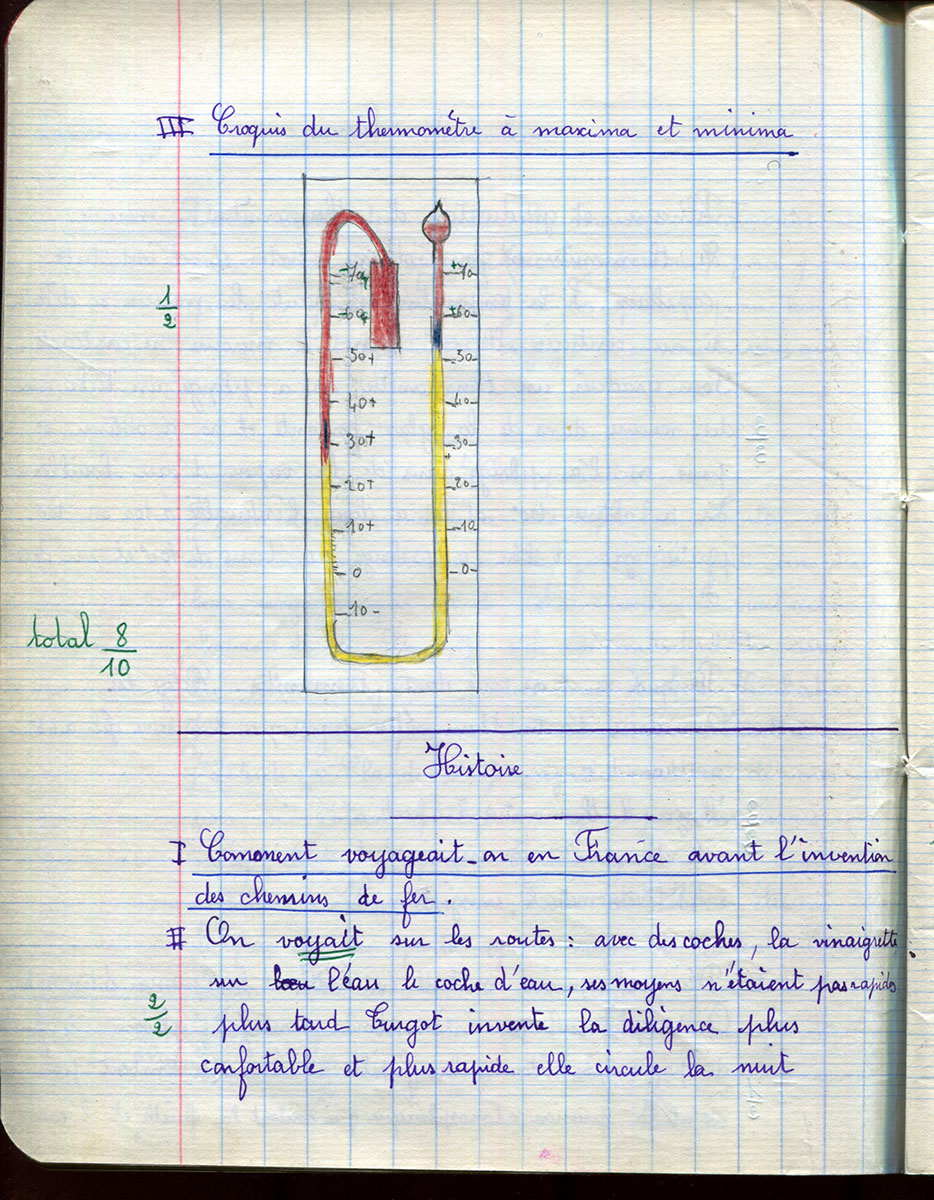 III Croquis du thermomètre à maxima et minima
1/2
-70 +70
-60 +60
50+ 50
40+ 40
30+ 30
20+ 20
10+ 10
0 0
10-
total 8/10
Histoire
I Comment voyageait-on en France avant l'invention
des chemins de fer.
II On voyait sur les routes : avec des coches, la vinaigrette
sur l'éau le coche d'eau, ses moyens n'étaient pas rapides
2/2
plus tard Turgot invente la diligence plus
confortable et plus rapide elle circule la nuit